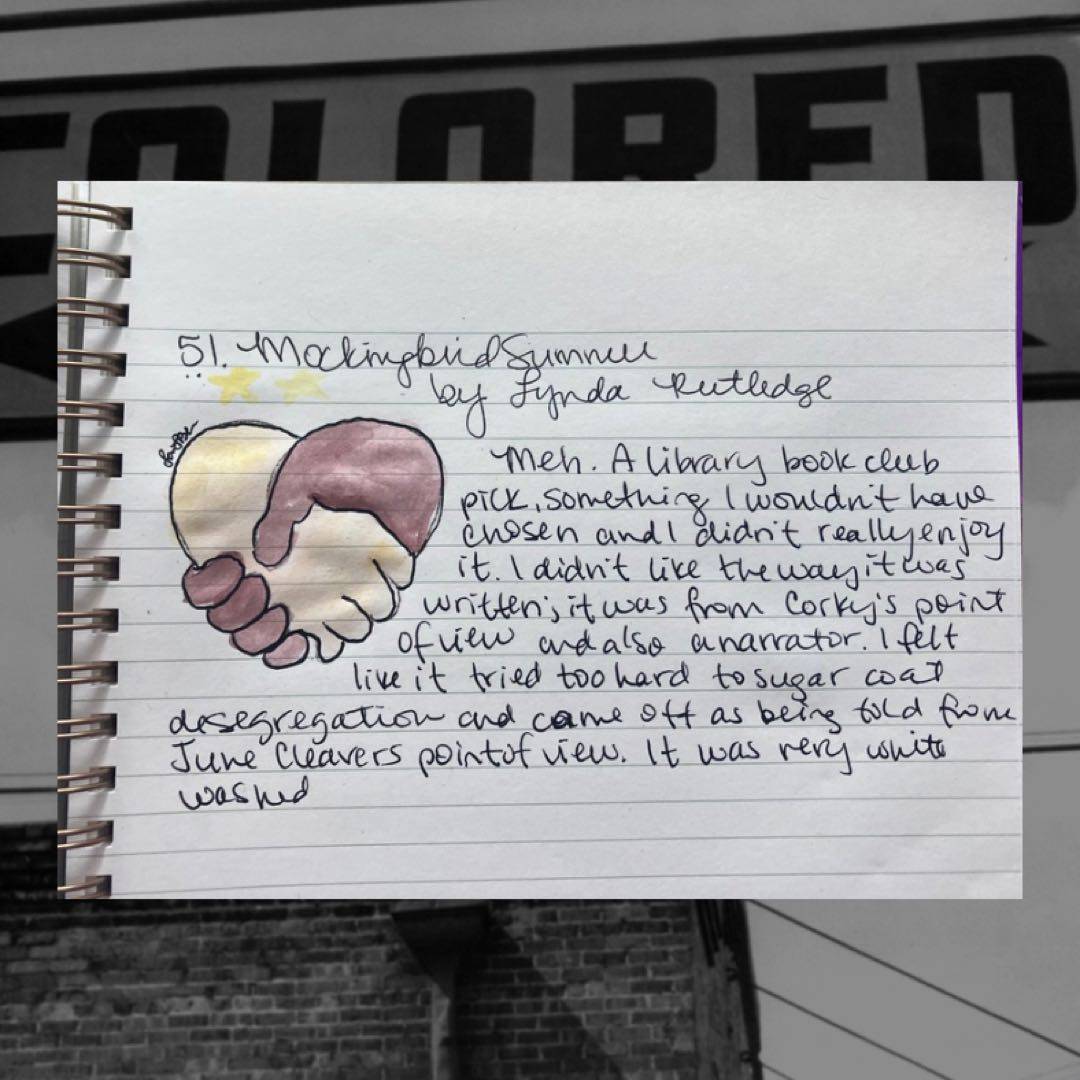 COLORED
51. Mockingbird Summer
by Lynda Rutledge
Meh. A library book club
pick, something I wouldn't have
chosen and I didn't really enjoy
it. I didn't like the way it was
written; it was from Corky's point
of view and also a narrator. I felt
like it tried too hard to sugar coat
desegregation and came off as being told from
June Cleavers point of view. It was very white
washed